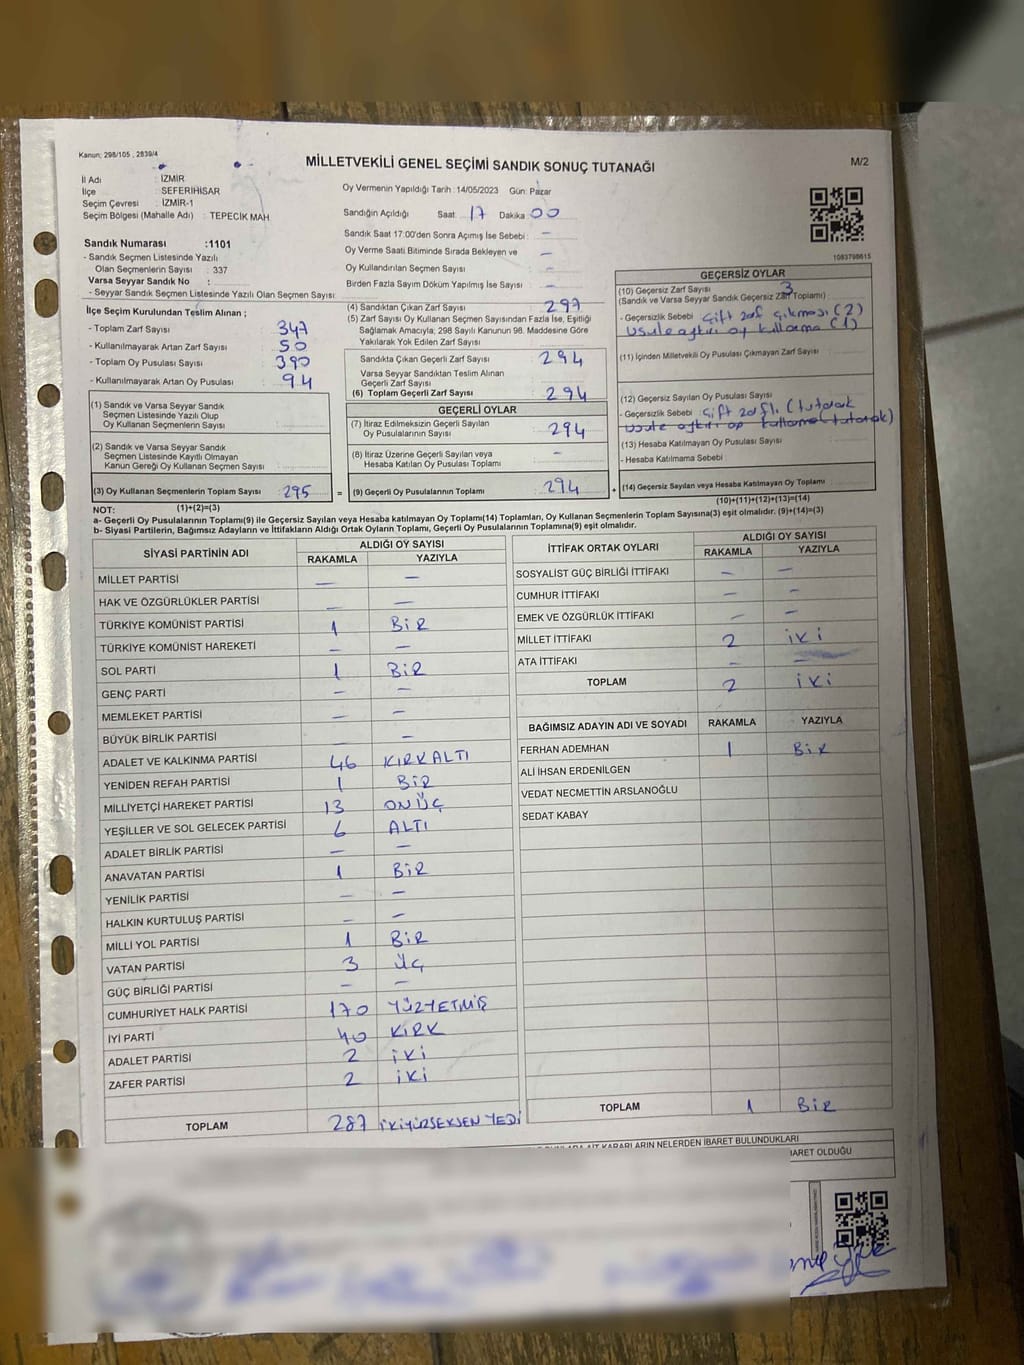 Kanun; 298/105 , 2839/4
MİLLETVEKİLİ GENEL SEÇİMİ SANDIK SONUÇ TUTANAĞI
M/2
İl Adı : İZMİR
İlçe : SEFERİHİSAR
Seçim Çevresi : İZMİR-1
Seçim Bölgesi (Mahalle Adı) : TEPECİK MAH
Oy Vermenin Yapıldığı Tarih : 14/05/2023 Gün: Pazar
Sandığın Açıldığı Saat : 17 Dakika : 00
Sandık Saat 17:00'den Sonra Açımış İse Sebebi : -
Oy Verme Saati Bitiminde Sırada Bekleyen ve -
Oy Kullandırılan Seçmen Sayısı : -
Birden Fazla Sayım Döküm Yapılmış İse Sayısı : -
1083798615
Sandık Numarası :1101
- Sandık Seçmen Listesinde Yazılı
Olan Seçmenlerin Sayısı : 337
Varsa Seyyar Sandık No :
- Seyyar Sandık Seçmen Listesinde Yazılı Olan Seçmen Sayısı:
İlçe Seçim Kurulundan Teslim Alınan ;
- Toplam Zarf Sayısı : 347
- Kullanılmayarak Artan Zarf Sayısı : 50
- Toplam Oy Pusulası Sayısı : 390
- Kullanılmayarak Artan Oy Pusulası : 94
(1) Sandık ve Varsa Seyyar Sandık
Seçmen Listesinde Yazılı Olup
Oy Kullanan Seçmenlerin Sayısı :
(2) Sandık ve Varsa Seyyar Sandık
Seçmen Listesinde Kayitlı Olmayan
Kanun Gereği Oy Kullanan Seçmen Sayısı :
(3) Oy Kullanan Seçmenlerin Toplam Sayısı : 295
(1)+(2)=(3)
(4) Sandıktan Çıkan Zarf Sayısı : 297
(5) Zarf Sayısı Oy Kullanan Seçmen Sayısından Fazla İse, Eşitliği
Sağlamak Amacıyla; 298 Sayılı Kanunun 98. Maddesine Göre
Yakılarak Yok Edilen Zarf Sayısı :
Sandıkta Çıkan Geçerli Zarf Sayısı : 294
Varsa Seyyar Sandıktan Teslim Alınan
Geçerli Zarf Sayısı :
(6) Toplam Geçerli Zarf Sayısı : 294
GEÇERLİ OYLAR
(7) İtiraz Edilmeksizin Geçerli Sayılan
Oy Pusulalarının Sayısı : 294
(8) İtiraz Üzerine Geçerli Sayılan veya
Hesaba Katılan Oy Pusulası Toplamı : -
= (9) Geçerli Oy Pusulalarının Toplamı : 294 +
GEÇERSİZ OYLAR
(10) Geçersiz Zarf Sayısı : 3
(Sandık ve Varsa Seyyar Sandık Geçersiz Zarf Toplamı)
- Geçersizlik Sebebi : Çift zarf çıkması (2)
usule aykırı oy kullanma (1)
(11) İçinden Milletvekili Oy Pusulası Çıkmayan Zarf Sayısı :
(12) Geçersiz Sayılan Oy Pusulası Sayısı :
- Geçersizlik Sebebi : Çift zarflı (tutarak
usule aykırı oy kullanma (tutarak)
(13) Hesaba Katılmayan Oy Pusulası Sayısı :
- Hesaba Katılmama Sebebi :
(14) Geçersiz Sayılan veya Hesaba Katılmayan Oy Toplamı :
(10)+(11)+(12)+(13)=(14)
NOT:
a- Geçerli Oy Pusulalarının Toplamı(9) ile Geçersiz Sayılan veya Hesaba katılmayan Oy Toplamı(14) Toplamları, Oy Kullanan Seçmenlerin Toplam Sayısına(3) eşit olmalıdır. (9)+(14)=(3)
b- Siyasi Partilerin, Bağımsız Adayların ve İttifakların Aldığı Ortak Oyların Toplamı, Geçerli Oy Pusulalarının Toplamına(9) eşit olmalıdır.
SİYASİ PARTİNİN ADI ALDIĞI OY SAYISI
RAKAMLA YAZIYLA
MİLLET PARTİSİ - -
HAK VE ÖZGÜRLÜKLER PARTİSİ - -
TÜRKİYE KOMÜNİST PARTİSİ 1 BİR
TÜRKİYE KOMÜNİST HAREKETİ - -
SOL PARTİ 1 BİR
GENÇ PARTİ - -
MEMLEKET PARTİSİ - -
BÜYÜK BİRLİK PARTİSİ - -
ADALET VE KALKINMA PARTİSİ 46 KIRKALTI
YENİDEN REFAH PARTİSİ 1 BİR
MİLLİYETÇİ HAREKET PARTİSİ 13 ONÜÇ
YEŞİLLER VE SOL GELECEK PARTİSİ 6 ALTI
ADALET BİRLİK PARTİSİ - -
ANAVATAN PARTİSİ 1 BİR
YENİLİK PARTİSİ - -
HALKIN KURTULUŞ PARTİSİ - -
MİLLİ YOL PARTİSİ 1 BİR
VATAN PARTİSİ 3 ÜÇ
GÜÇ BİRLİĞİ PARTİSİ - -
CUMHURİYET HALK PARTİSİ 170 YÜZYETMİŞ
İYİ PARTİ 40 KIRK
ADALET PARTİSİ 2 İKİ
ZAFER PARTİSİ 2 İKİ
TOPLAM 287 İKİYÜZSEKSEN YEDİ
İTTİFAK ORTAK OYLARI ALDIĞI OY SAYISI
RAKAMLA YAZIYLA
SOSYALİST GÜÇ BİRLİĞİ İTTİFAKI - -
CUMHUR İTTİFAKI - -
EMEK VE ÖZGÜRLÜK İTTİFAKI - -
MİLLET İTTİFAKI 2 İKİ
ATA İTTİFAKI -
TOPLAM 2 İKİ
BAĞIMSIZ ADAYIN ADI VE SOYADI RAKAMLA YAZIYLA
FERHAN ADEMHAN 1 BİR
ALİ İHSAN ERDENİLGEN
VEDAT NECMETTİN ARSLANOĞLU
SEDAT KABAY
TOPLAM 1 BİR
KARARLARIN NELERDEN İBARET BULUNDUKLARI
İBARET OLDUĞU